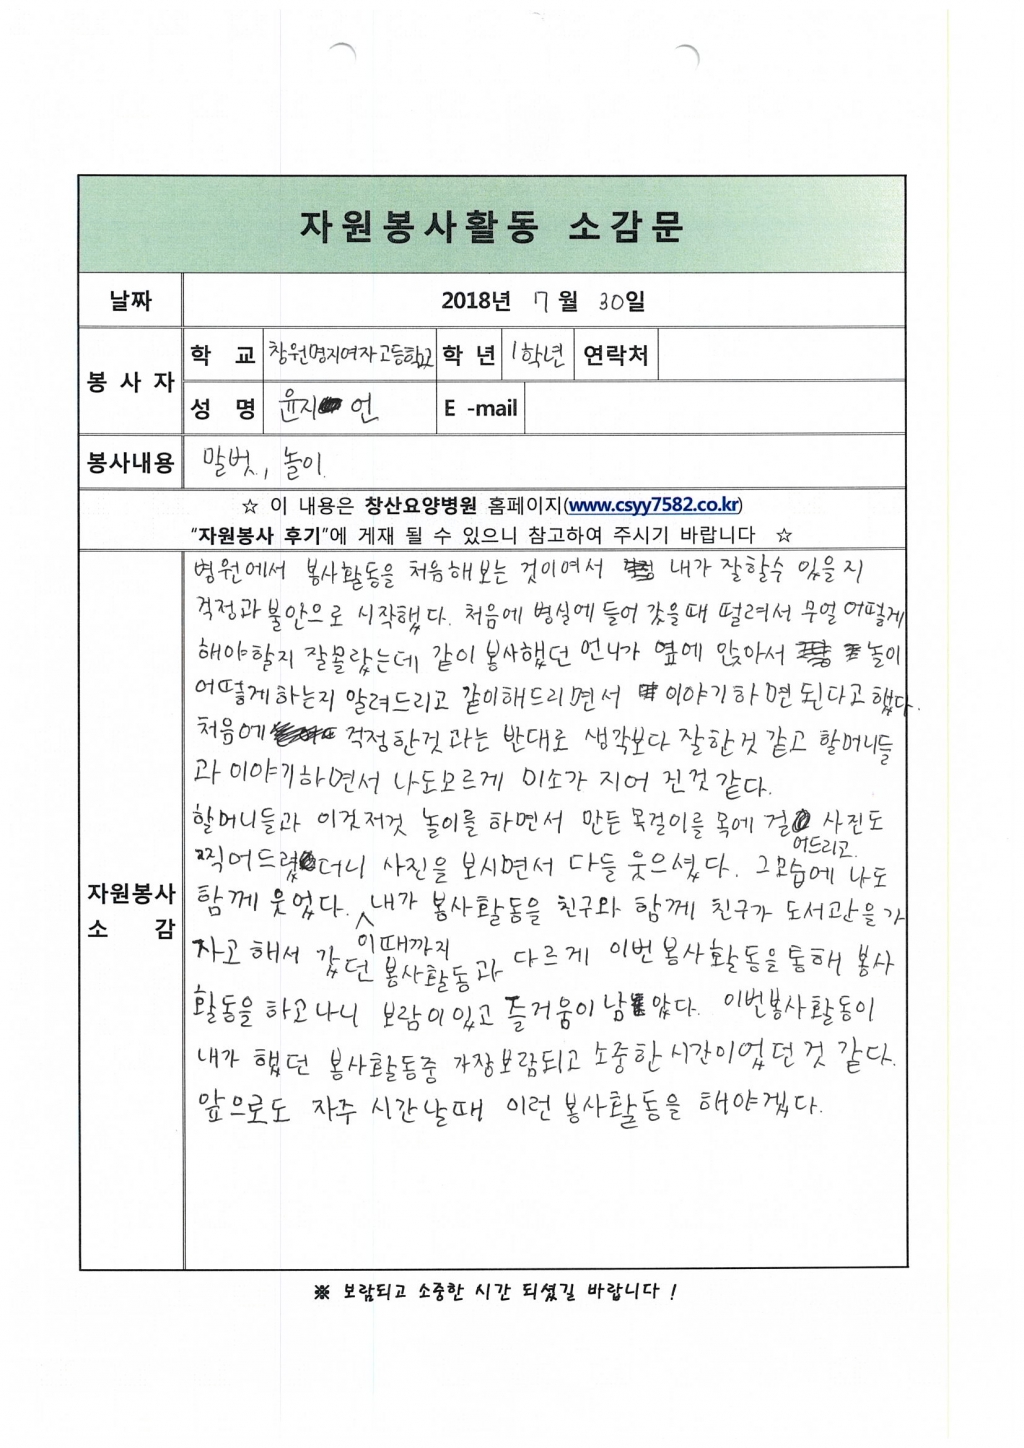 자원봉사활동 소감문
날짜 2018년 7월 30일
봉사자 학 교 창원명지여자고등학교 학 년 1학년 연락처
성 명 윤지언 E -mail
봉사내용 말벗, 놀이
☆ 이 내용은 창산요양병원 홈페이지(www.csyy7582.co.kr)
"자원봉사 후기"에 게재 될 수 있으니 참고하여 주시기 바랍니다 ☆
자원봉사
소 감
병원에서 봉사활동을 처음해보는 것이여서 내가 잘할수 있을지
걱정과 불안으로 시작했다. 처음에 병실에 들어 갔을때 떨려서 무얼 어떻게
해야할지 잘몰랐는데 같이 봉사했던 언니가 옆에 앉아서 놀이
어떻게하는지 알려드리고 같이해드리면서 이야기하면된다고했다.
처음에 걱정한것과는 반대로 생각보다 잘한것 같고 할머니들
과 이야기하면서 나도모르게 미소가 지어 진것 같다.
할머니들과 이것저것 놀이를 하면서 만든 목걸이를 목에 걸어드리고 사진도
찍어드렸더니 사진을 보시면서 다들 웃으셨다. 그모습에 나도
함께 웃었다. 이때까지 내가 봉사활동을 친구와 함께 친구가 도서관을가
자고 해서 갔던 봉사활동과 다르게 이번봉사활동을통해 봉사
활동을 하고나니 보람이있고 즐거움이 남았다. 이번봉사활동이
내가 했던 봉사활동중 가장보람되고 소중한시간이었던것 같다.
앞으로도 자주 시간날때 이런 봉사활동을 해야겠다.
※ 보람되고 소중한 시간 되셨길 바랍니다 !